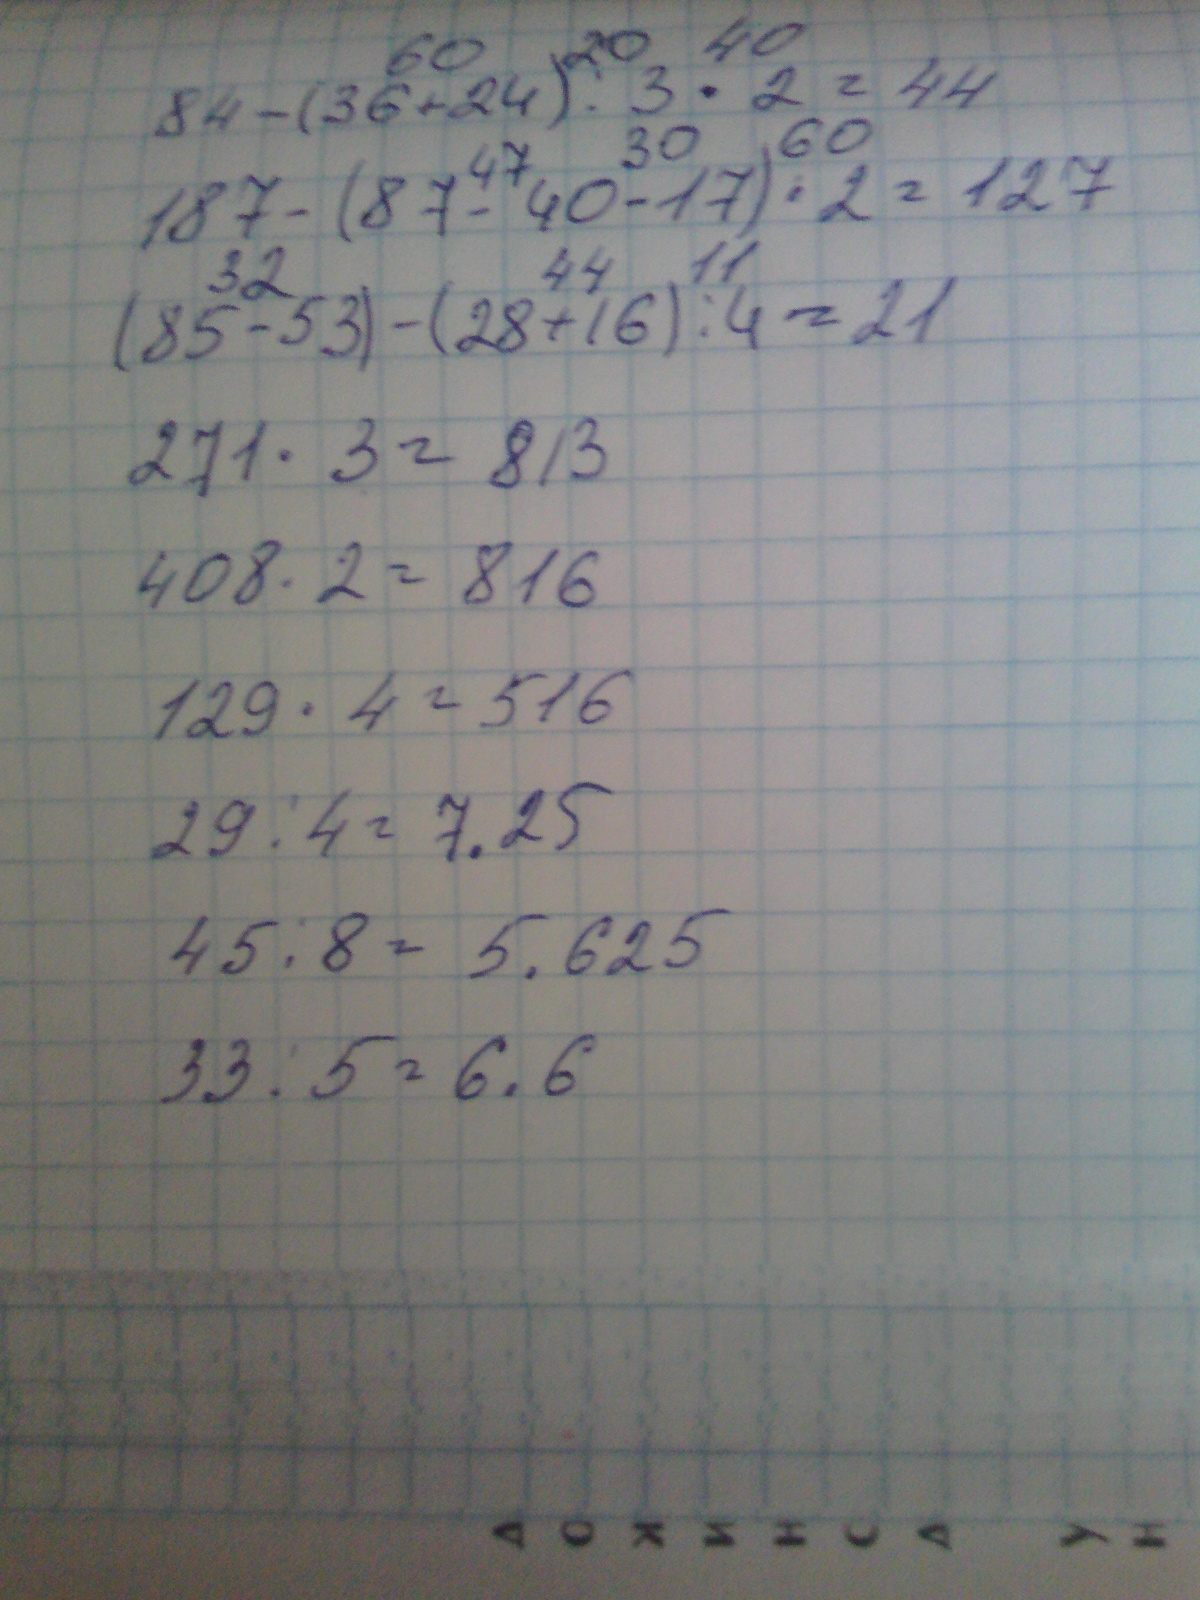 60 20 40
84-(36+24):3·2=44
47 30 60
187-(87-40-17)·2=127
32 44 11
(85-53)-(28+16):4=21
271·3=813
408·2=816
129·4=516
29:4=7.25
45:8=5.625
33:5=6.6